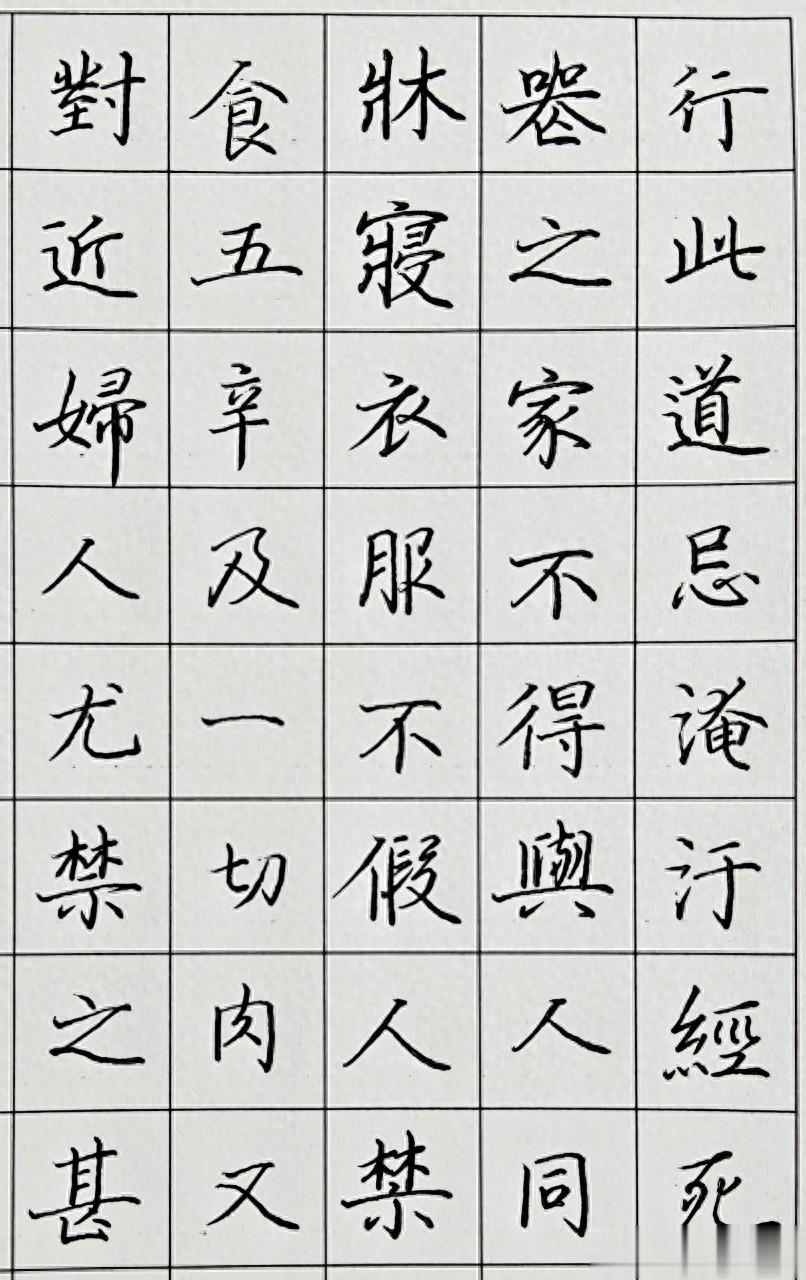 行此道忌淹汙經死
喪之家不得與人同
牀寢衣服不假人禁
食五辛及一切肉又
對近婦人尤禁之甚